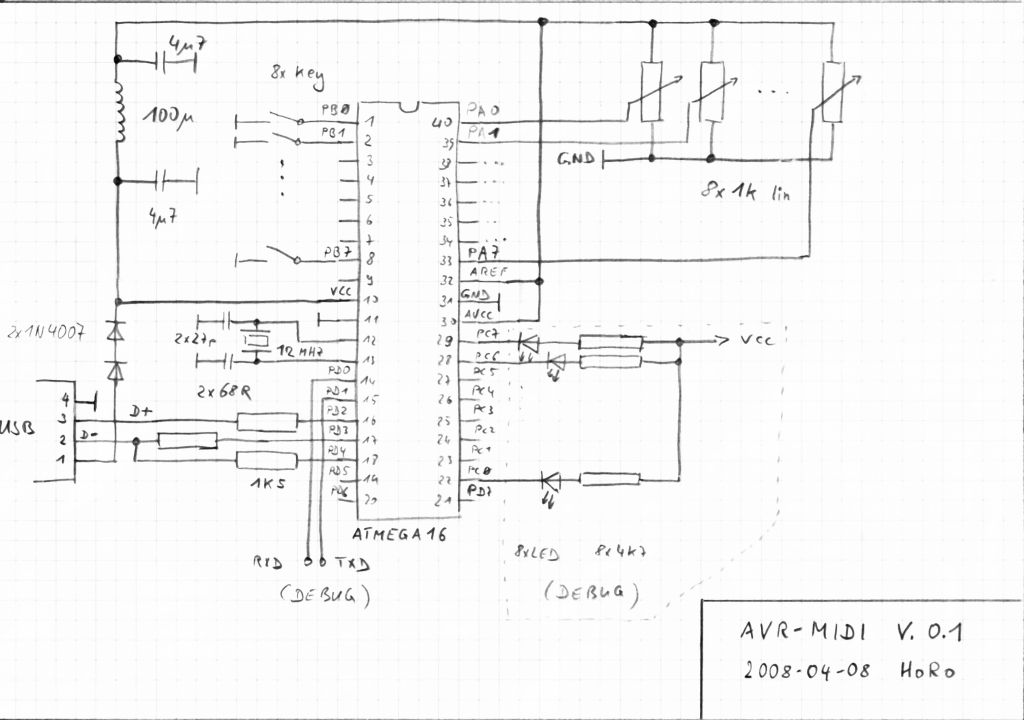 4µ7
100µ
4µ7
8x key
PB0
PB1
PB7
VCC
1
2
3
4
5
6
7
8
9
10
11
12
13
14
15
16
17
18
19
20
40
39
38
37
36
35
34
33
32
31
30
29
28
27
26
25
24
23
22
21
PA0
PA1
...
...
...
...
...
PA7
AREF
GND
AVCC
PC7
PC6
PC5
PC4
PC3
PC2
PC1
PC0
PD7
...
GND
8x 1k lin
2x1N4007
2x27p
12MHz
2x68R
PD0
PD1
PD2
PD3
PD4
PD5
PD6
USB
4
3
2
1
D+
D-
1K5
ATMEGA16
RXD
TXD
(DEBUG)
VCC
8xLED 8x4k7
(DEBUG)
AVR-MIDI V. 0.1
2008-04-08 HoRo